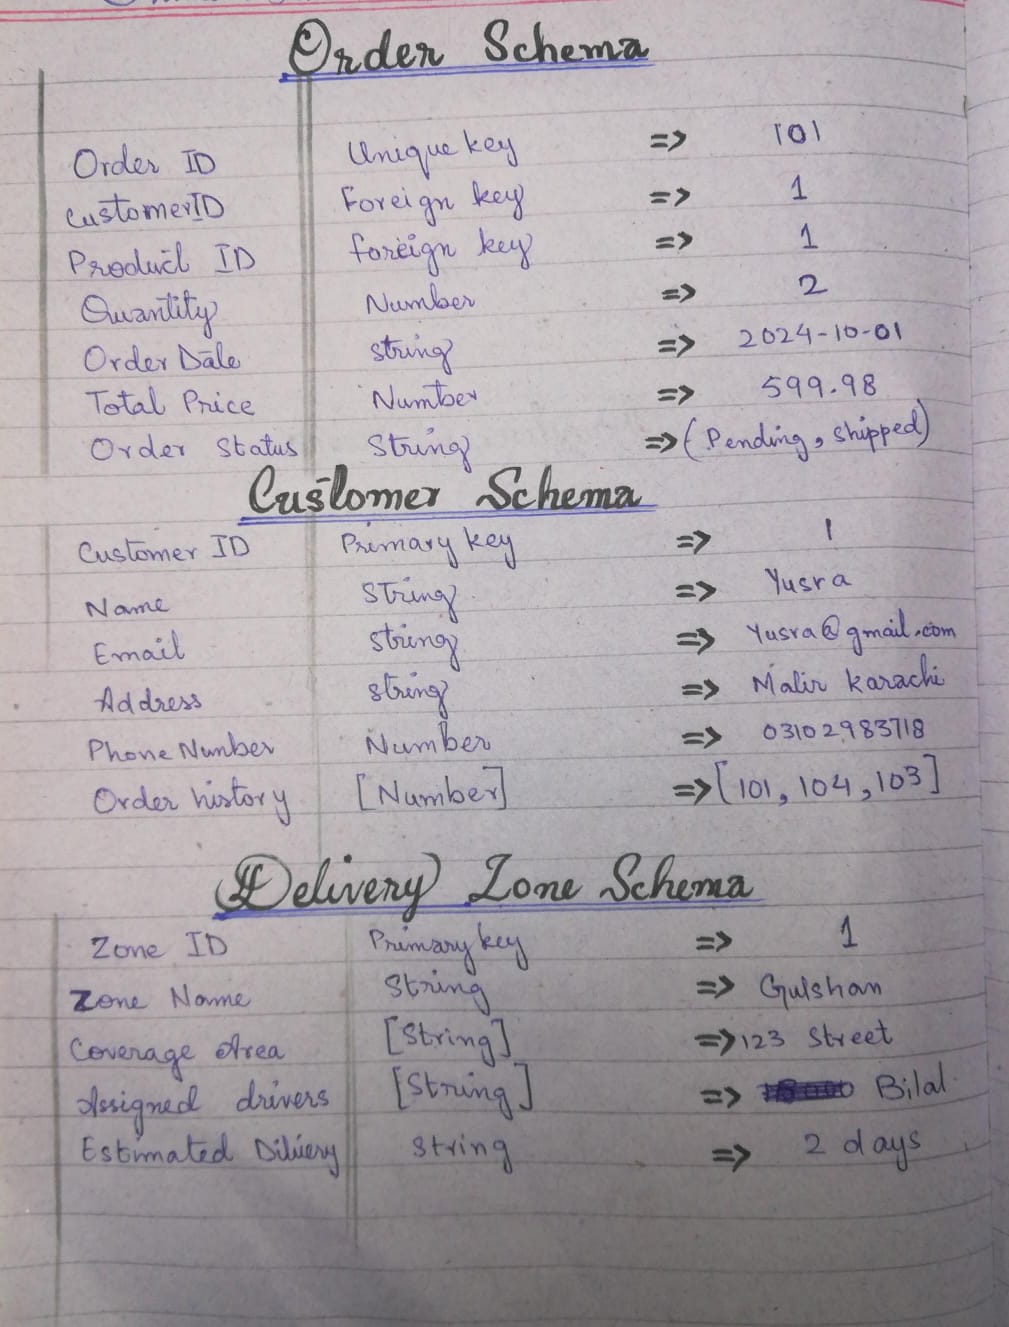 Order Schema
Order ID Unique key => 101
CustomerID Foreign key => 1
Product ID foreign key => 1
Quantity Number => 2
Order Date string => 2024-10-01
Total Price Number => 599.98
Order Status String => (Pending, Shipped)
Customer Schema
Customer ID Primary key => 1
Name String => Yusra
Email string => Yusra@gmail.com
Address string => Malir Karachi
Phone Number Number => 03102983718
Order history [Number] => [101, 104, 103]
Delivery Zone Schema
Zone ID Primary key => 1
Zone Name String => Gulshan
Coverage Area [String] => 123 Street
Assigned drivers [String] => Bilal
Estimated Diliery String => 2 days